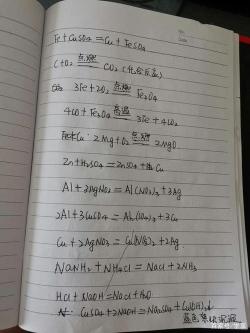 Fe+CuSO4=Cu+FeSO4
C+O2 点燃 CO2 (化合反应)
3Fe+2O2 点燃 Fe3O4
4CO+Fe3O4 高温 3Fe+4CO2
2Mg+O2 点燃 2MgO
Zn+H2SO4=ZnSO4+H2
Al+3AgNO3=Al(NO3)3+3Ag
2Al+3CuSO4=Al2(SO4)3+3Cu
Cu+2AgNO3=Cu(NO3)2+2Ag
NaNH2+NH4Cl=NaCl+2NH3
HCl+NaOH=NaCl+H2O
CuSO4+2NaOH=Na2SO4+Cu(OH)2↓
蓝色絮状沉淀